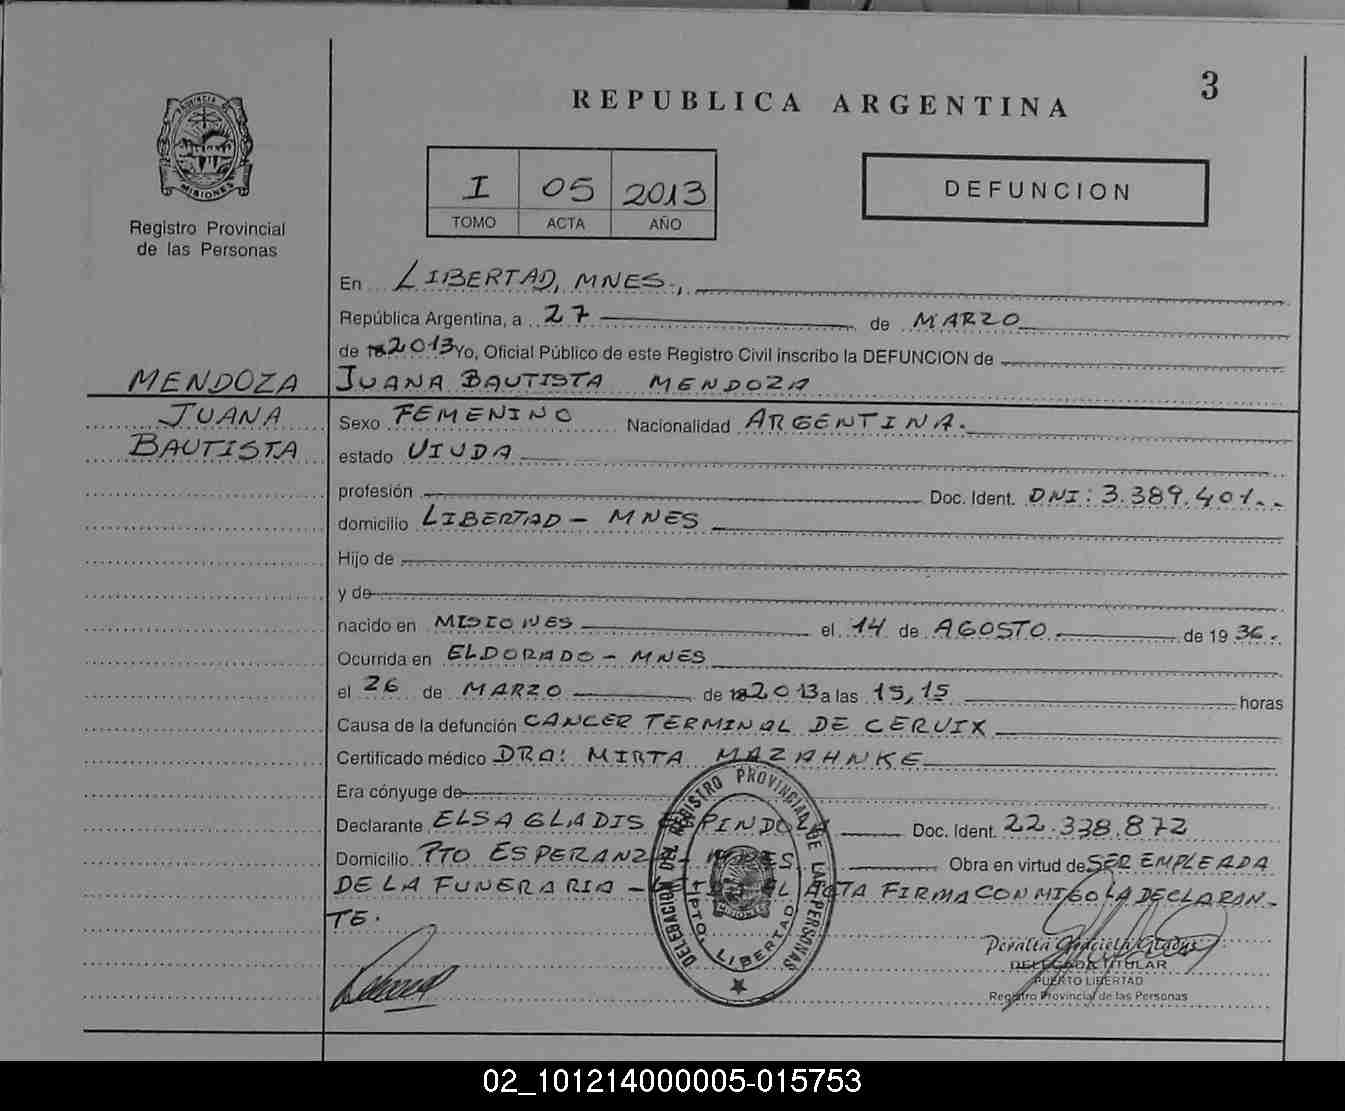 3
REPUBLICA ARGENTINA
PROVINCIA DE
MISIONES
Registro Provincial
de las Personas
I 05 2013
TOMO ACTA AÑO
DEFUNCION
En LIBERTAD, MNES.,
República Argentina, a 27 de MARZO
de 2013 Yo, Oficial Público de este Registro Civil inscribo la DEFUNCION de
MENDOZA JUANA BAUTISTA MENDOZA
JUANA Sexo FEMENINO Nacionalidad ARGENTINA.
BAUTISTA estado VIUDA
profesión Doc. Ident. DNI: 3.389.401.-
domicilio LIBERTAD - MNES
Hijo de
y de
nacido en MISIONES el 14 de AGOSTO de 1936.
Ocurrida en ELDORADO - MNES
el 26 de MARZO de 2013 a las 15,15 horas
Causa de la defunción CANCER TERMINAL DE CERVIX
Certificado médico DRA: MIRTA MAZIAHNKE
Era cónyuge de
Declarante ELSA GLADIS ESPINDOLA Doc. Ident. 22.338.872
Domicilio PTO ESPERANZA - MNES Obra en virtud de SER EMPLEADA
DE LA FUNERARIA - LEIDA EL ACTA FIRMA CONMIGO LA DECLARAN-
TE.
DELEGACION DEL REGISTRO PROVINCIAL DE LAS PERSONAS
PTO. LIBERTAD
MISIONES
Peralta Graciela Gladys
DELEGADA TITULAR
PUERTO LIBERTAD
Registro Provincial de las Personas
02_101214000005-015753